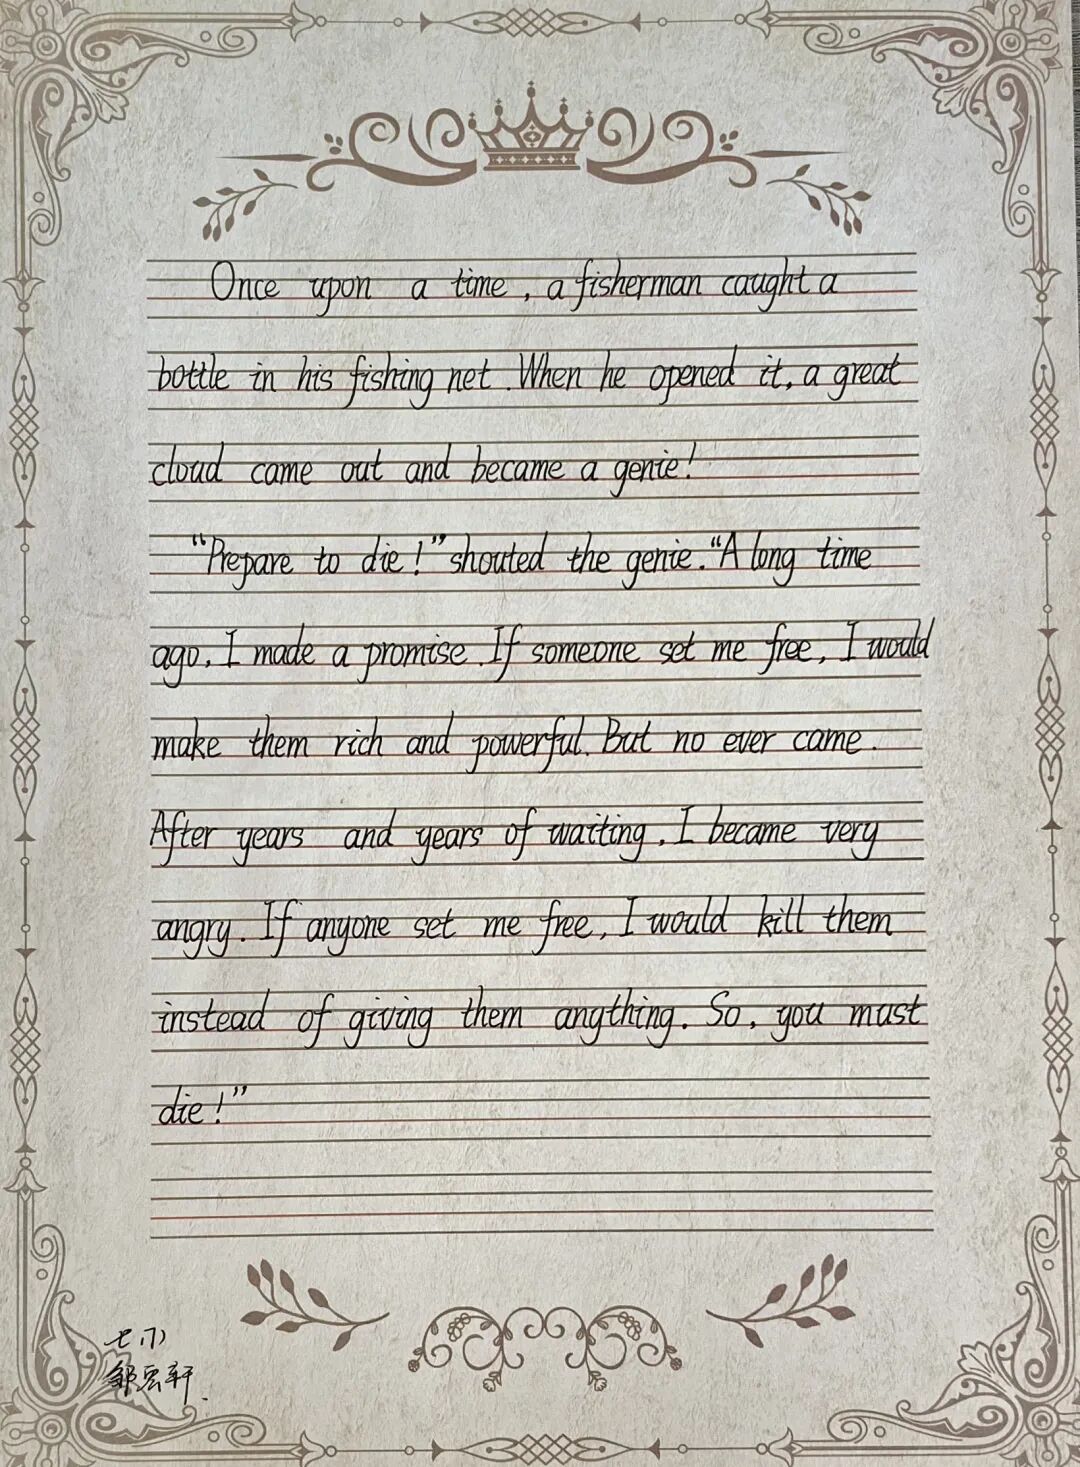 Once upon a time, a fisherman caught a
bottle in his fishing net. When he opened it, a great
cloud came out and became a genie!
"Prepare to die!" shouted the genie. "A long time
ago, I made a promise. If someone set me free, I would
make them rich and powerful. But no ever came.
After years and years of waiting, I became very
angry. If anyone set me free, I would kill them
instead of giving them angthing. So, you must
die!"
七(7)
邹云轩